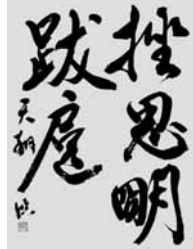 挫思明
跋扈
天翔